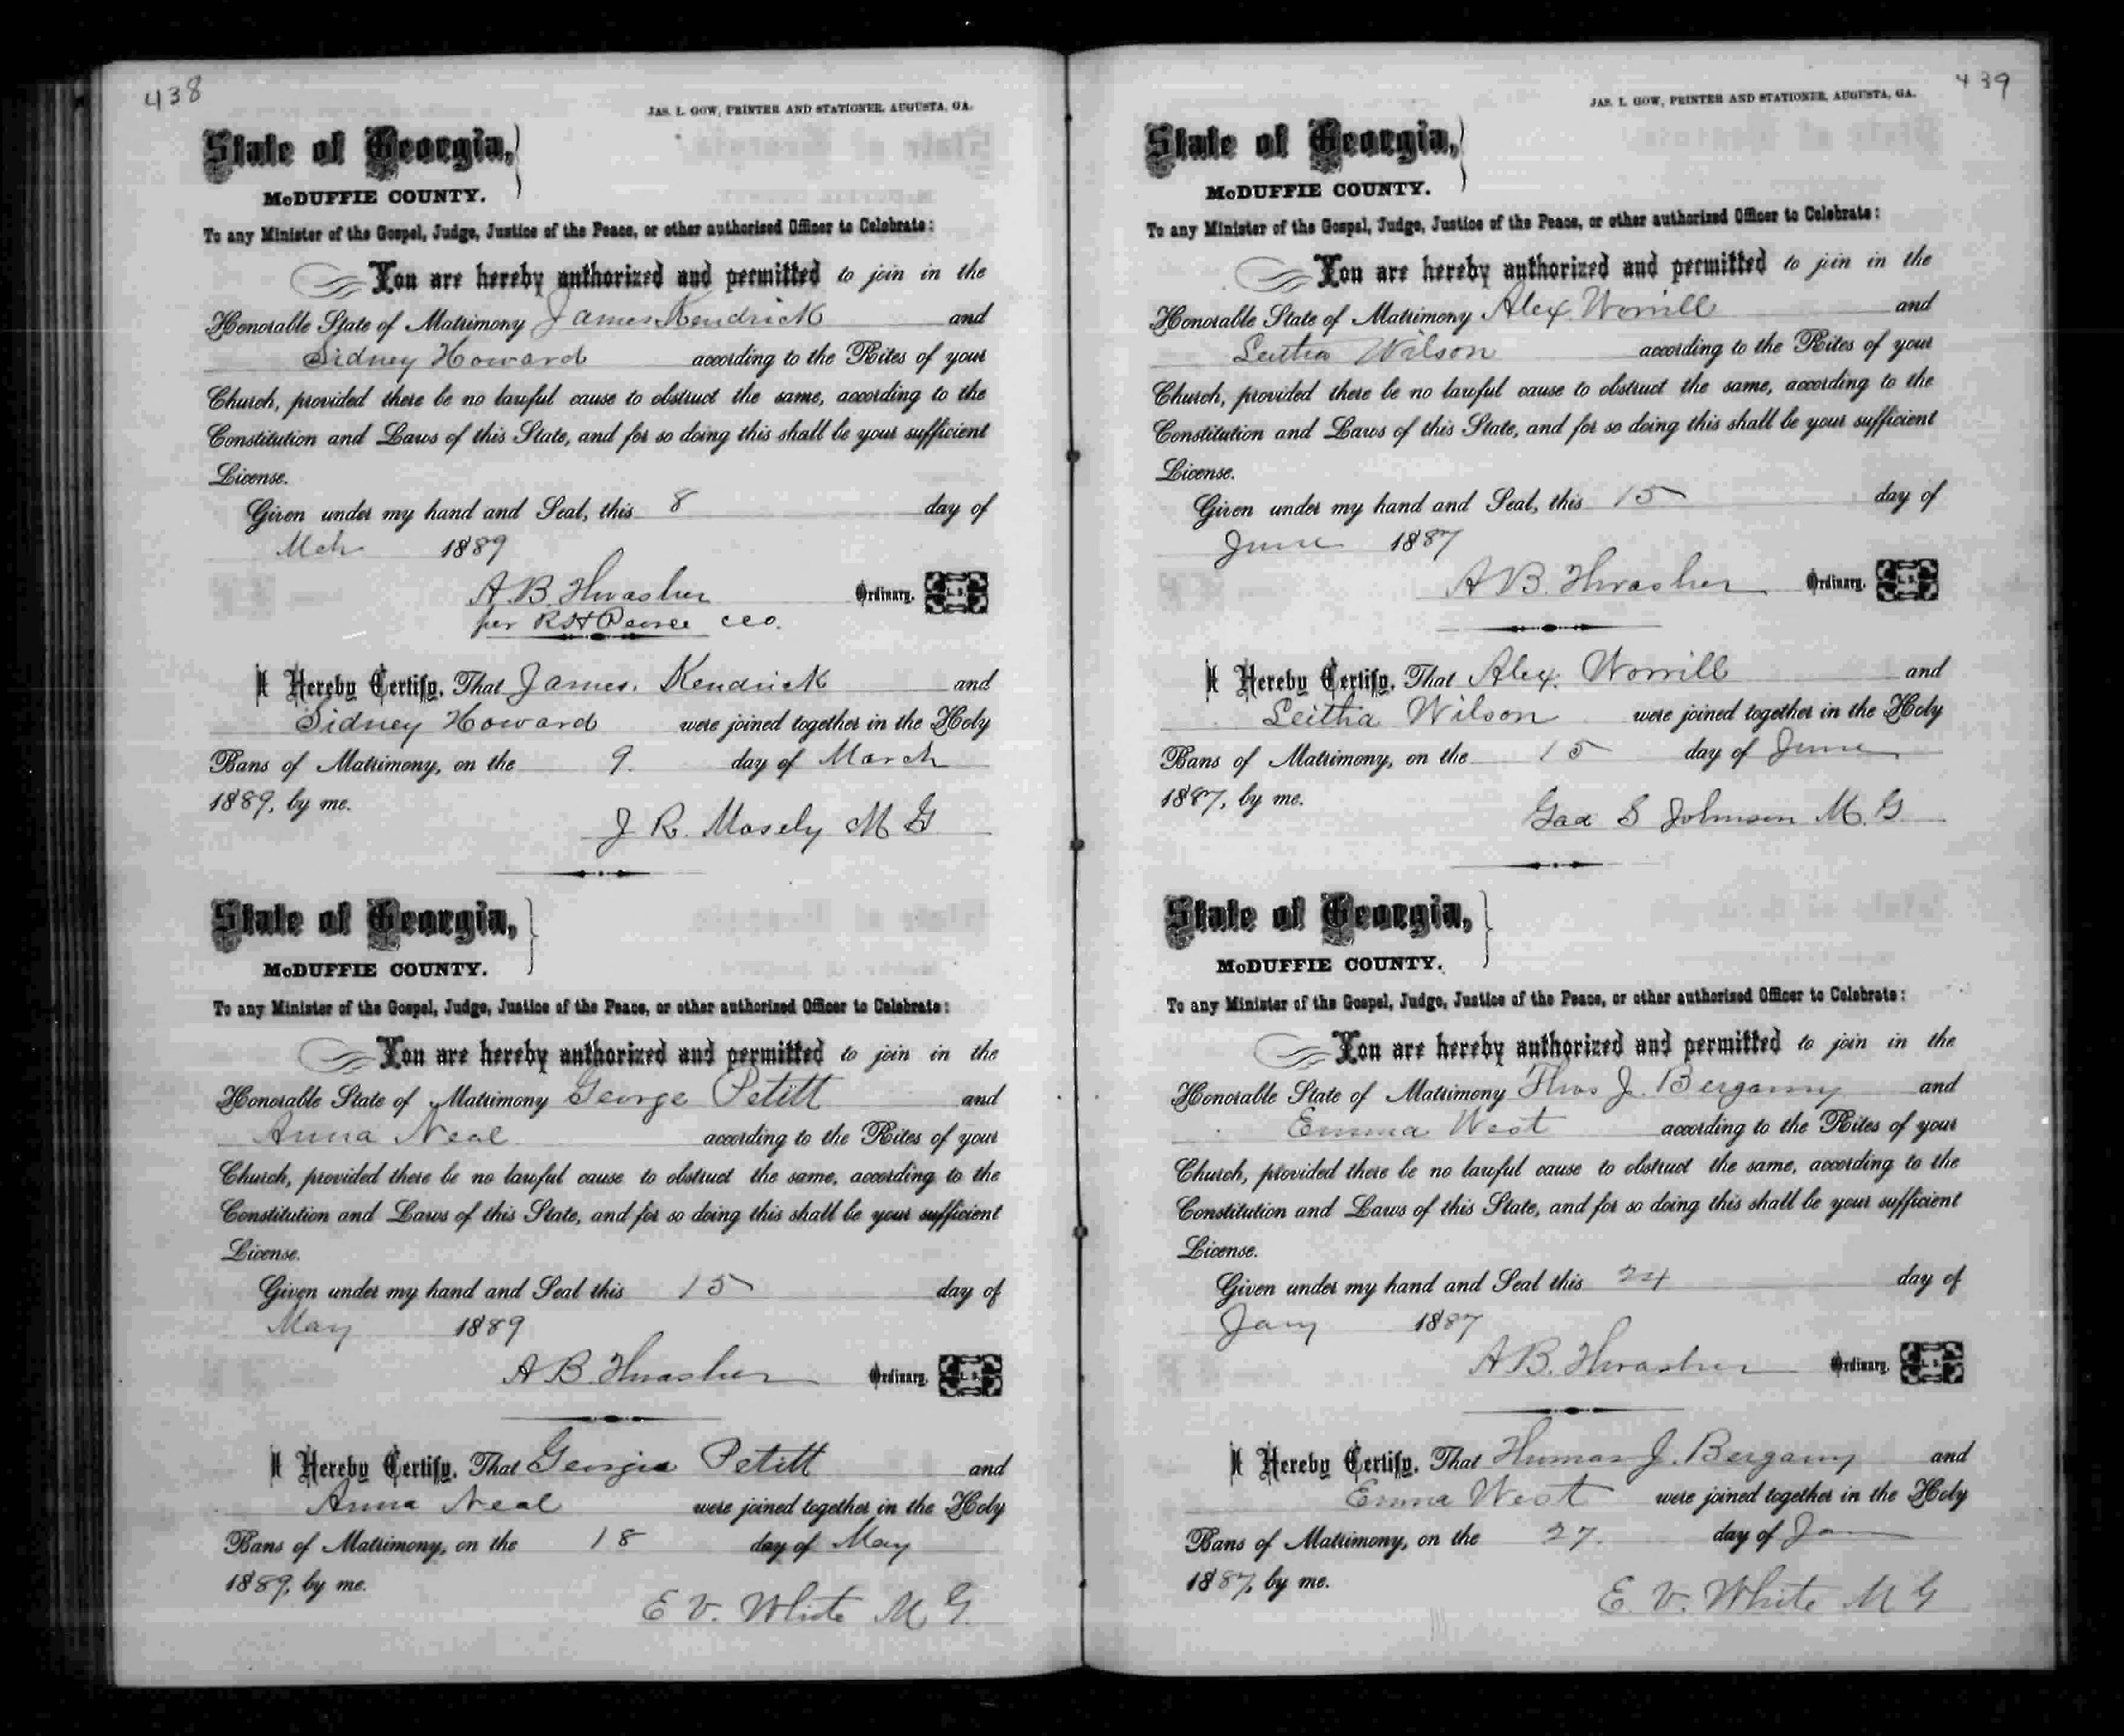 438
JAS. L. GOW, PRINTER AND STATIONER, AUGUSTA, GA.
State of Georgia,
McDUFFIE COUNTY.
To any Minister of the Gospel, Judge, Justice of the Peace, or other authorized Officer to Celebrate:
You are hereby authorized and permitted to join in the
Honorable State of Matrimony James Kendrick and
Sidney Howard according to the Rites of your
Church, provided there be no lawful cause to obstruct the same, according to the
Constitution and Laws of this State, and for so doing this shall be your sufficient
License.
Given under my hand and Seal, this 8 day of
Mch 1889
A. B. Thrasher Ordinary. L. S.
per R H Pearce CCO.
I Hereby Certify, That James. Kendrick and
Sidney Howard were joined together in the Holy
Bans of Matrimony, on the 9. day of March
1889, by me.
J R. Mosely M G
State of Georgia,
McDUFFIE COUNTY.
To any Minister of the Gospel, Judge, Justice of the Peace, or other authorized Officer to Celebrate:
You are hereby authorized and permitted to join in the
Honorable State of Matrimony George Petitt and
Anna Neal according to the Rites of your
Church, provided there be no lawful cause to obstruct the same, according to the
Constitution and Laws of this State, and for so doing this shall be your sufficient
License.
Given under my hand and Seal this 15 day of
May 1889
A B. Thrasher Ordinary. L. S.
I Hereby Certify, That Georgia Petitt and
Anna Neal were joined together in the Holy
Bans of Matrimony, on the 18 day of May
1889, by me.
E V. White M G.
439
JAS. L. GOW, PRINTER AND STATIONER, AUGUSTA, GA.
State of Georgia,
McDUFFIE COUNTY.
To any Minister of the Gospel, Judge, Justice of the Peace, or other authorized Officer to Celebrate:
You are hereby authorized and permitted to join in the
Honorable State of Matrimony Alex. Worrill and
Leitha Wilson according to the Rites of your
Church, provided there be no lawful cause to obstruct the same, according to the
Constitution and Laws of this State, and for so doing this shall be your sufficient
License.
Given under my hand and Seal, this 15 day of
June 1887
A B. Thrasher Ordinary. L. S.
I Hereby Certify, That Alex. Worrill and
Leitha Wilson were joined together in the Holy
Bans of Matrimony, on the 15 day of June
1887, by me.
S Johnson M. G
State of Georgia,
McDUFFIE COUNTY.
To any Minister of the Gospel, Judge, Justice of the Peace, or other authorized Officer to Celebrate:
You are hereby authorized and permitted to join in the
Honorable State of Matrimony Thos J. Bergamy and
Emma West according to the Rites of your
Church, provided there be no lawful cause to obstruct the same, according to the
Constitution and Laws of this State, and for so doing this shall be your sufficient
License.
Given under my hand and Seal this 24 day of
Jany 1887
A B. Thrasher Ordinary. L. S.
I Hereby Certify, That J. Bergamy and
Emma West were joined together in the Holy
Bans of Matrimony, on the 27. day of Jan
1887, by me.
E. V. White M G